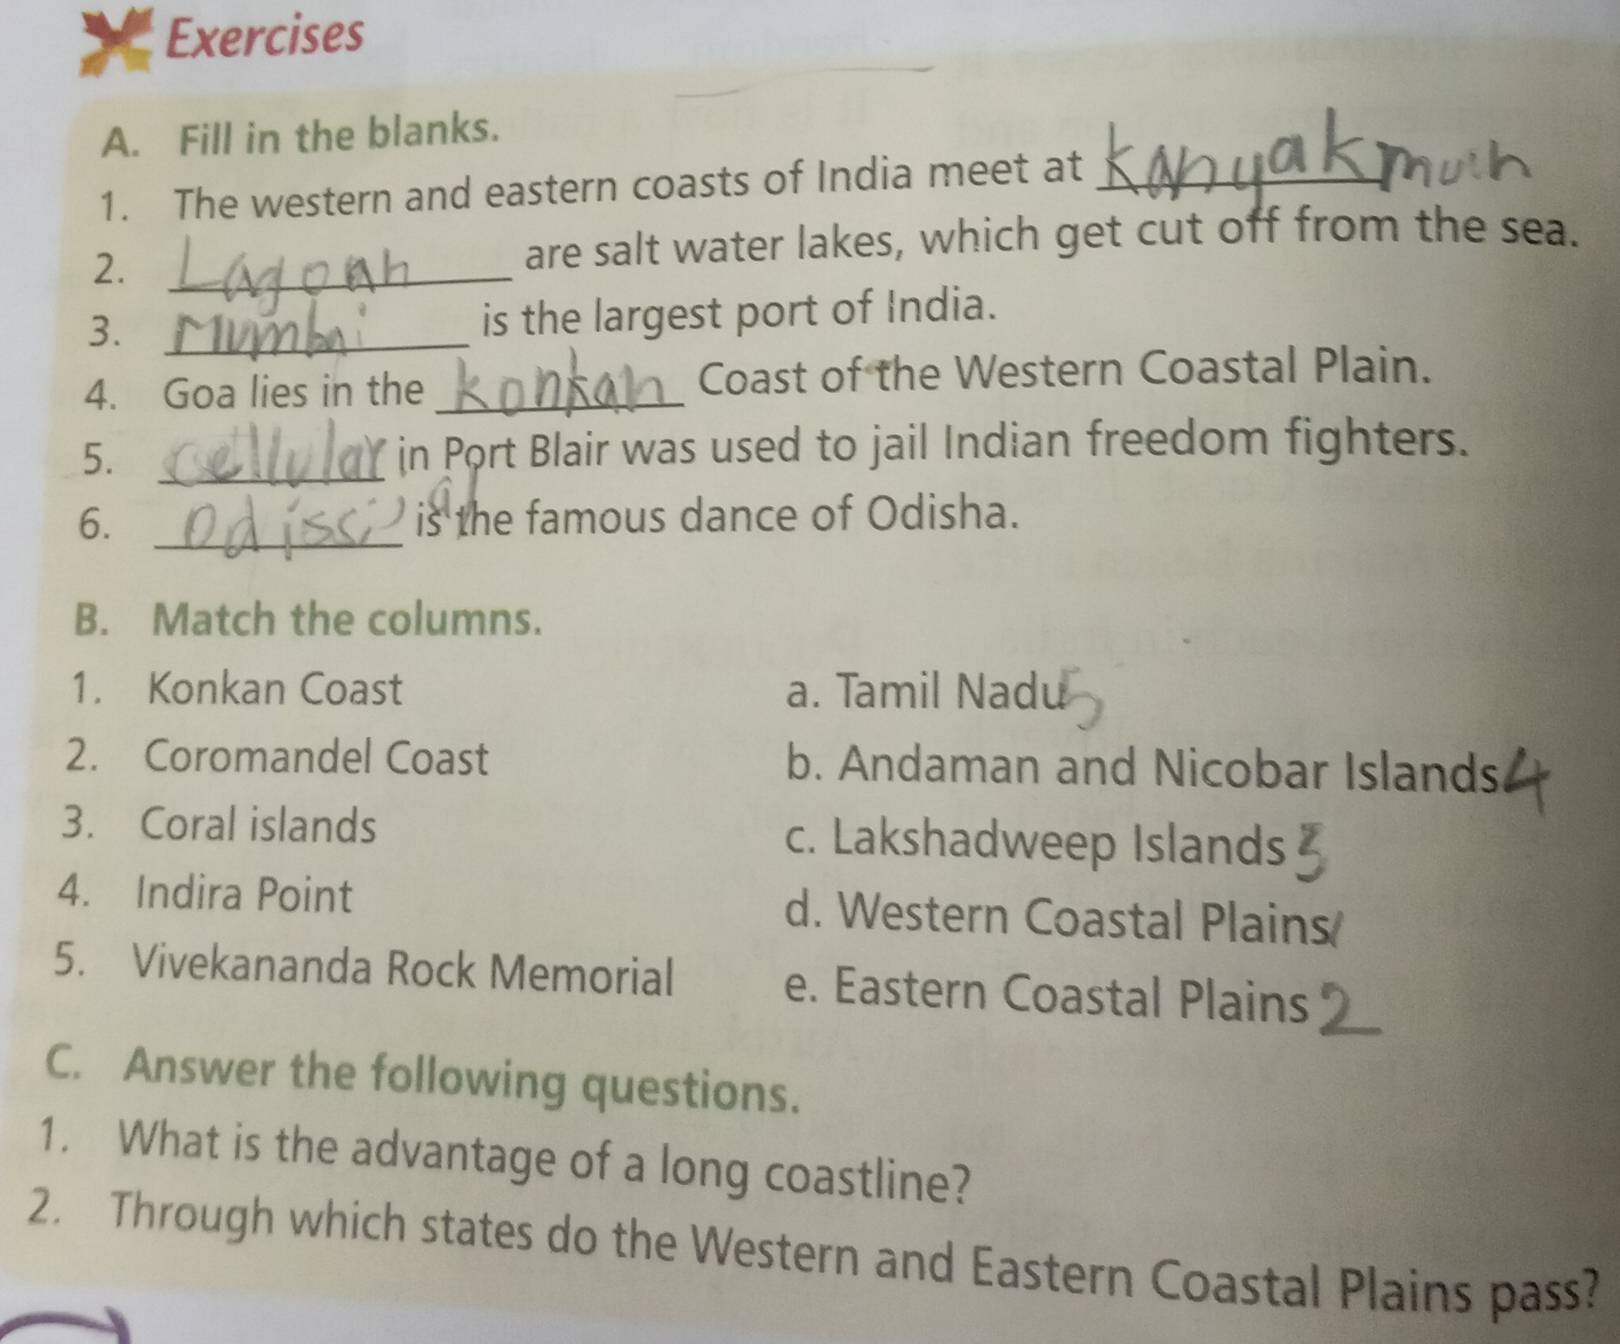 Exercises
A. Fill in the blanks.
1. The western and eastern coasts of India meet at
2. Lagoan are salt water lakes, which get cut off from the sea.
3. Mumbai is the largest port of India.
4. Goa lies in the konkan Coast of the Western Coastal Plain.
5. cellular in Port Blair was used to jail Indian freedom fighters.
6. Odissi is the famous dance of Odisha.
B. Match the columns.
1. Konkan Coast a. Tamil Nadu 5
2. Coromandel Coast b. Andaman and Nicobar Islands 4
3. Coral islands c. Lakshadweep Islands
4. Indira Point d. Western Coastal Plains
5. Vivekananda Rock Memorial e. Eastern Coastal Plains 2
C. Answer the following questions.
1. What is the advantage of a long coastline?
2. Through which states do the Western and Eastern Coastal Plains pass?